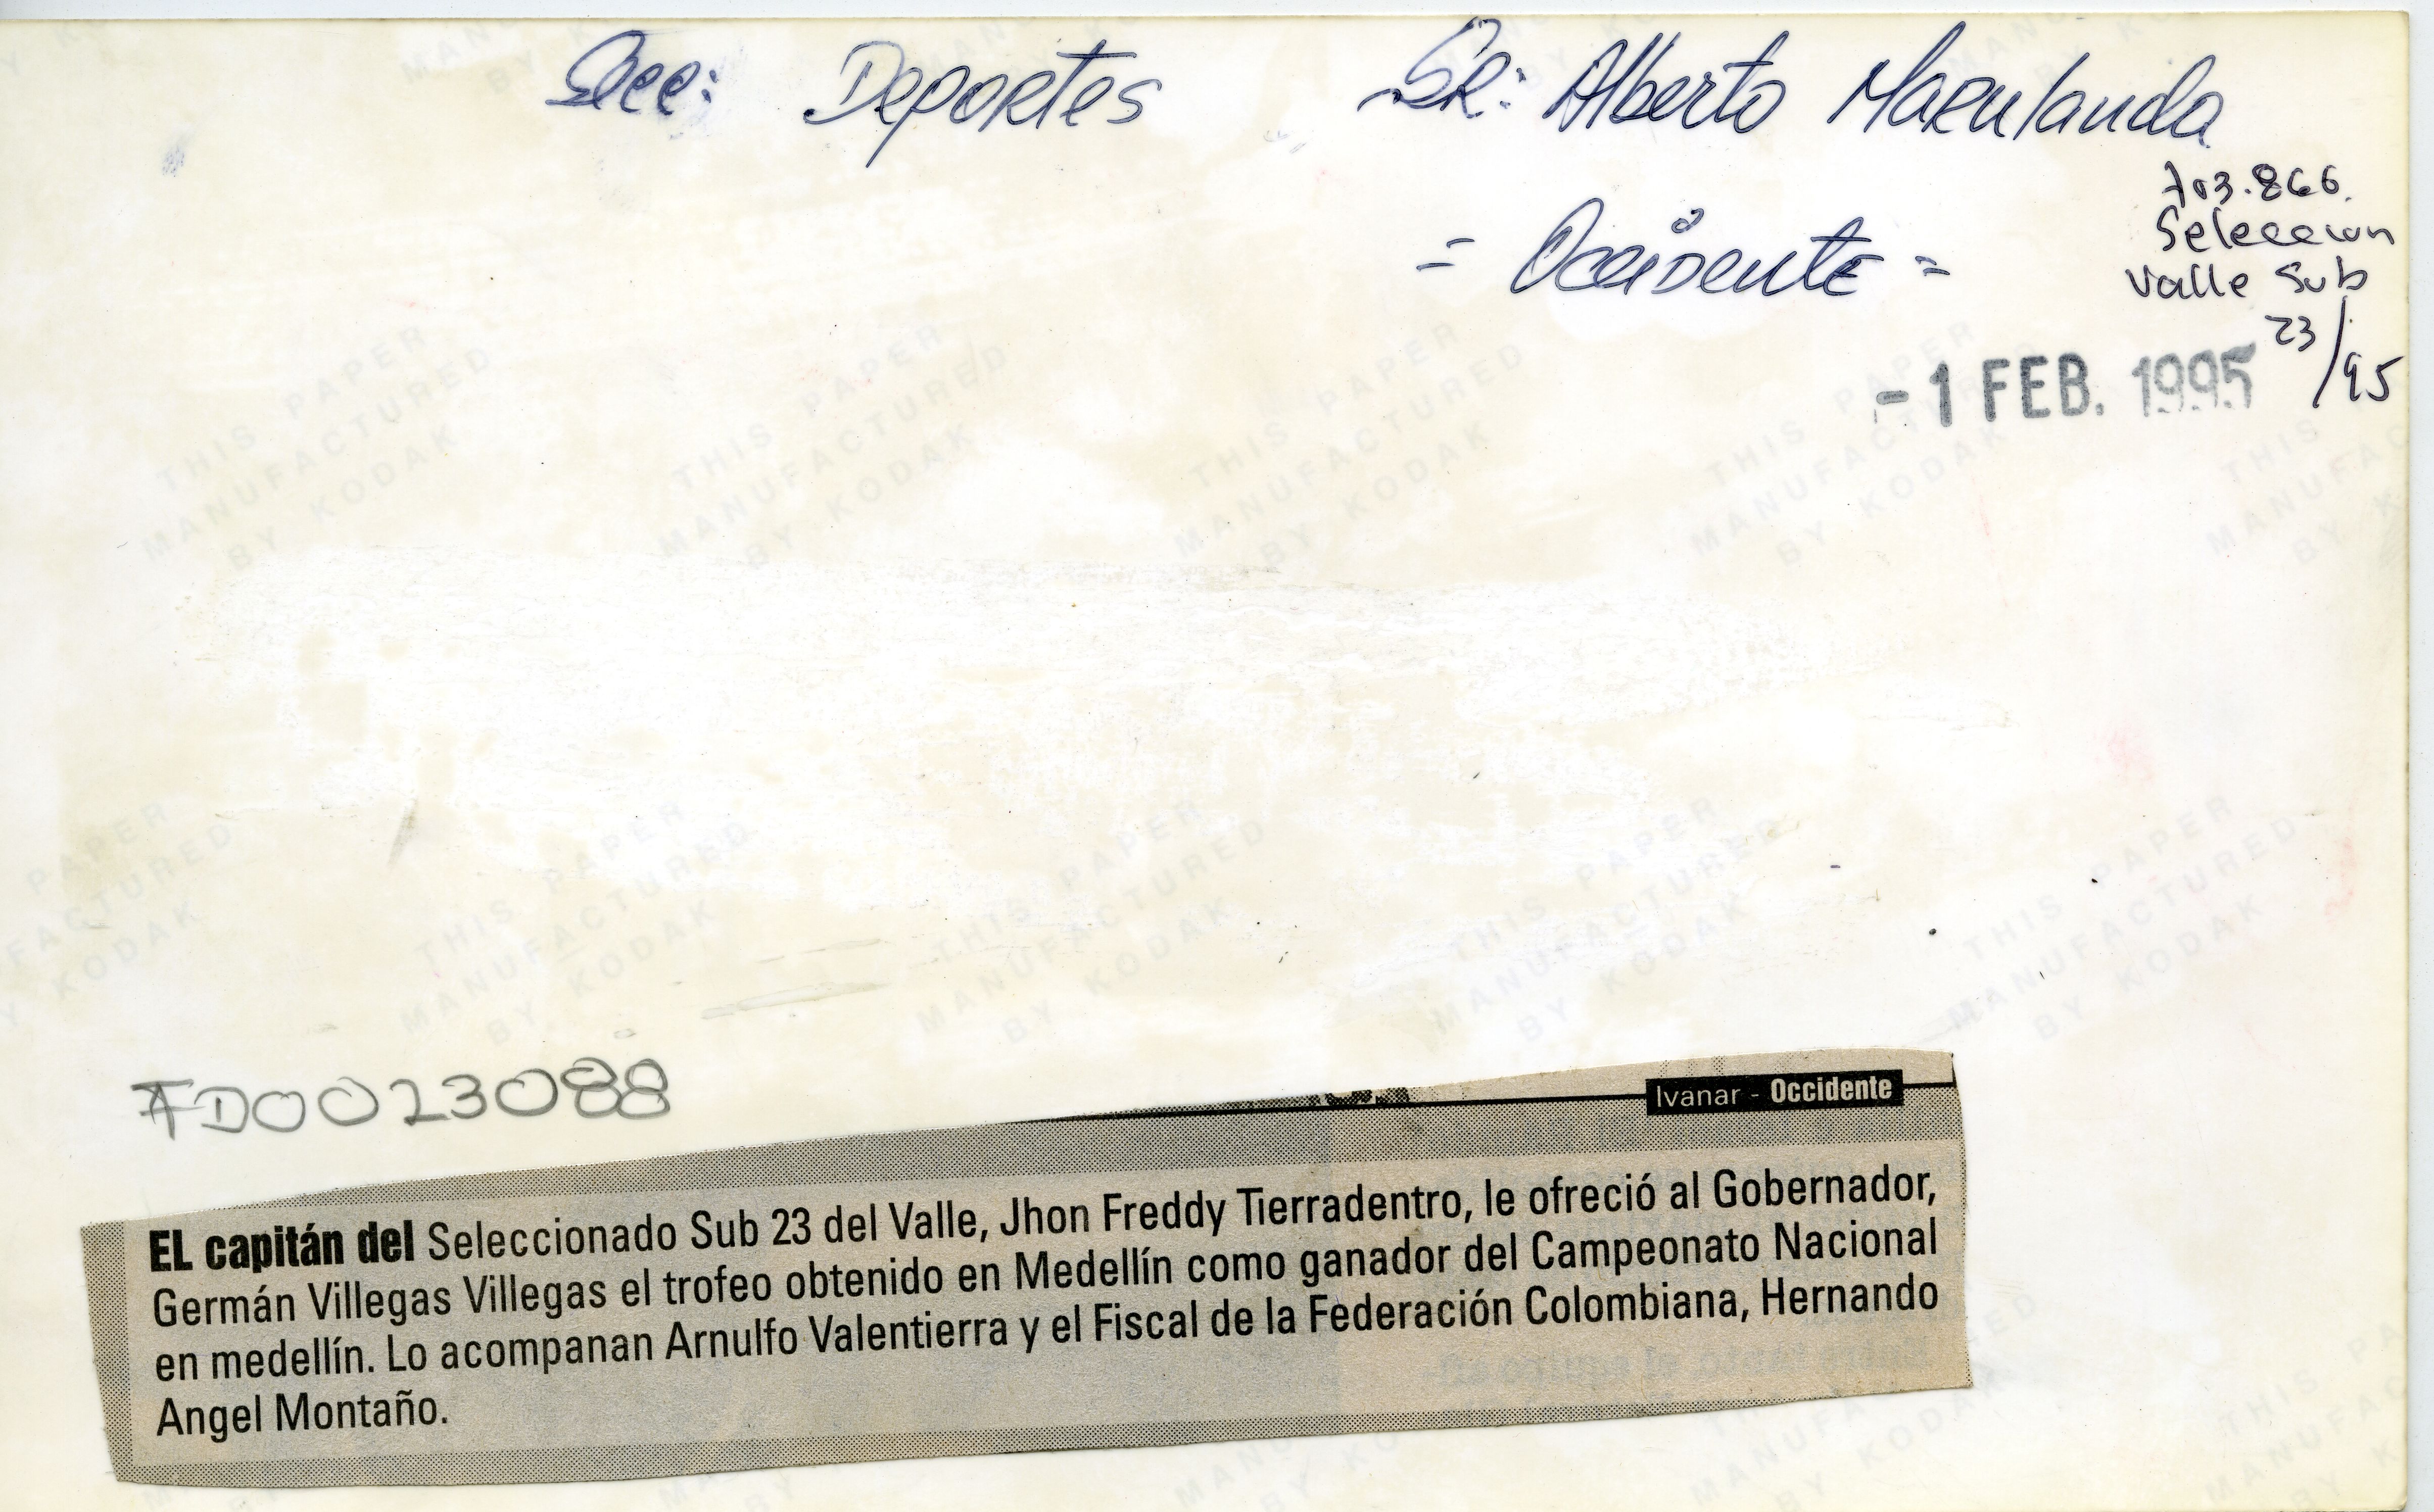 Secc: Deportes
SR: Alberto Marulanda
= Occidente =
703.866.
Seleccion
Valle Sub
23/95
-1 FEB. 1995
THIS PAPER
MANUFACTURED
BY KODAK
AD0023088
Ivanar - Occidente
EL capitán del Seleccionado Sub 23 del Valle, Jhon Freddy Tierradentro, le ofreció al Gobernador,
Germán Villegas Villegas el trofeo obtenido en Medellín como ganador del Campeonato Nacional
en medellín. Lo acompanan Arnulfo Valentierra y el Fiscal de la Federación Colombiana, Hernando
Angel Montaño.